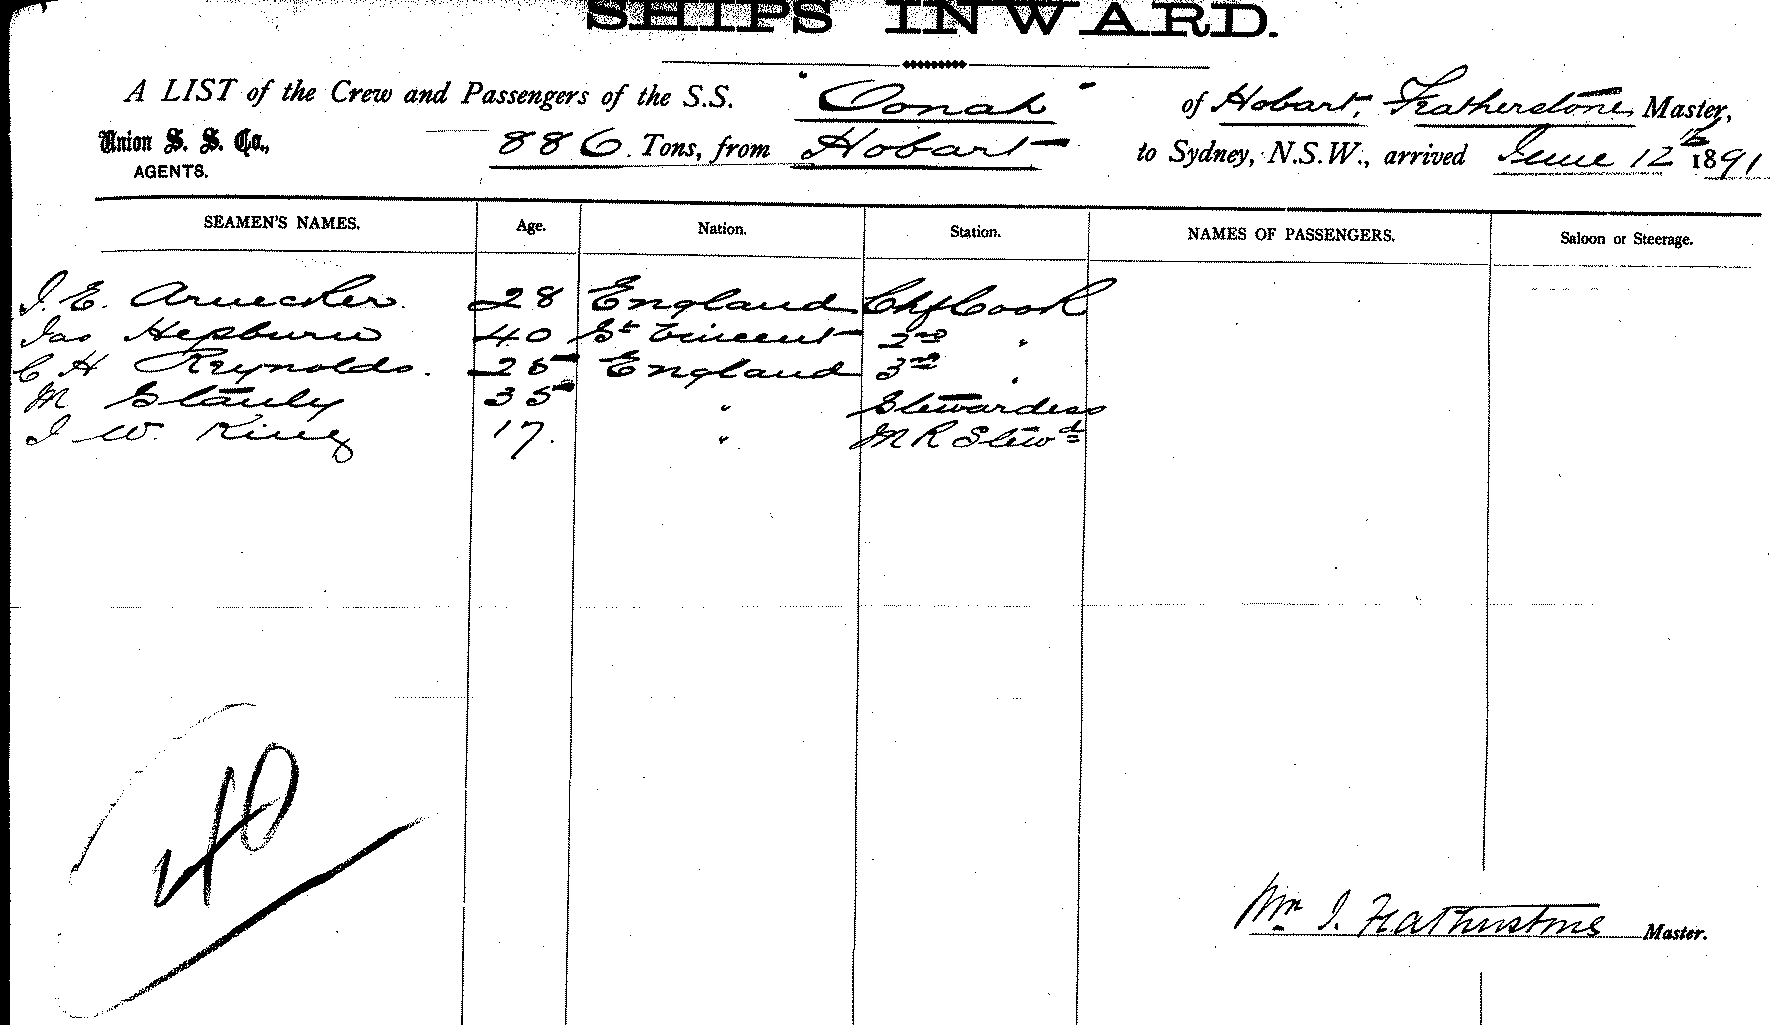 SHIPS INWARD.
A LIST of the Crew and Passengers of the S.S. "Oonah" of Hobart, Featherstone, Master,
Union S. S. Co., 886. Tons, from Hobart to Sydney, N.S.W., arrived June 12th 1891
AGENTS.
SEAMEN'S NAMES. Age. Nation. Station. NAMES OF PASSENGERS. Saloon or Steerage.
J. E. 28 England Chf Cook
Jas Hepburn 40 St Vincent 2nd "
C H Reynolds. 25 England 3rd "
M Stanley 35 " Stewardess
J W. King 17. " M R Stewd
40
Wm J. Featherstone Master.